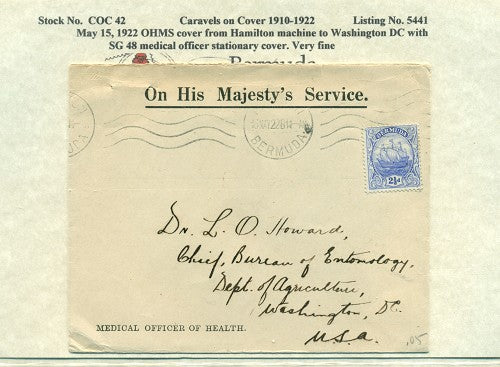 Stock No. COC 42 Caravels on Cover 1910-1922 Listing No. 5441
May 15, 1922 OHMS cover from Hamilton machine to Washington DC with
SG 48 medical officer stationary cover. Very fine
Bermuda
On His Majesty's Service.
BERMUDA
BERMUDA
2½d
Dr. L. O. Howard,
Chief, Bureau of Entomology,
Dept. of Agriculture,
Washington, DC.
U.S.A.
MEDICAL OFFICER OF HEALTH.
.05